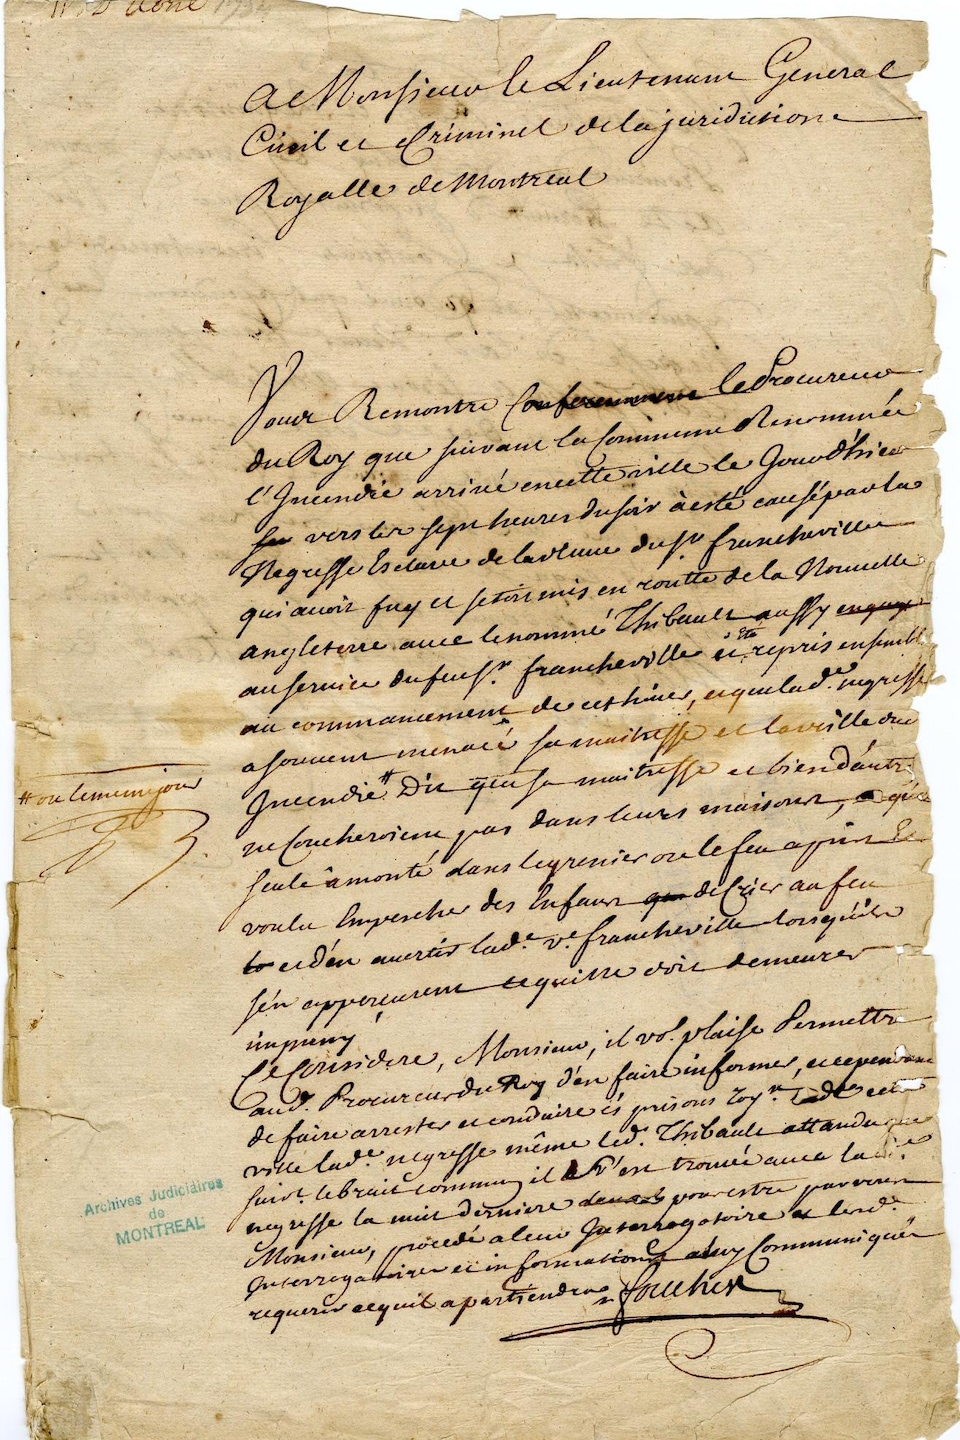 11 avril 1734
A Monsieur le Lieutenant General
Civil et Criminel de la juridiction
Royalle de Montreal
Vous Remontre le Procureur
du Roy que suivant la Commune Renommée
l'Incendie arrivé en cette ville le Jour d'hier
sur vers les sept heures du soir à esté causé par la
Negresse Esclave de la veuve du Sr. francheville
qui avoit fuy et s'etoit mis en routte de la Nouvelle
angleterre avec le nommé Thibault aussy engagé
au service du feu Sr. francheville et Eté repris ensemble
au commancement de cet hiver, et que lade. negresse
a souvent menacé sa maitresse et la veille du
Incendie # Dit que sa maitresse et bien d'autre
# ou le meme jour
ne Coucheroient pas dans leurs maisons, qu'
seule à monté dans le grenier ou le feu a pris Et
voulu Empescher des Enfans de Crier au feu
et d'en avertir lade. ve. francheville lorsqu'ils
s'en apperçeurent ce qui ne doit demeurer
impuny
Ce Consideré, Monsieur, il vs. plaise Permettre
aud. Procureur du Roy d'en faire informer, et cependant
de faire arrester et conduire és prisons Royx. de cette
ville lade. negresse même led. Thibault attandu que
suivt. le bruit commun il s'est trouvé avec lade.
negresse la nuit derniere pour estre par vous
Monsieur, procedé a leur Interrogatoire et lesd.
Interrogatoires et informations a luy Communiqués
requerir ce quil apartiendra
foucher
Archives Judiciaires
de
MONTREAL